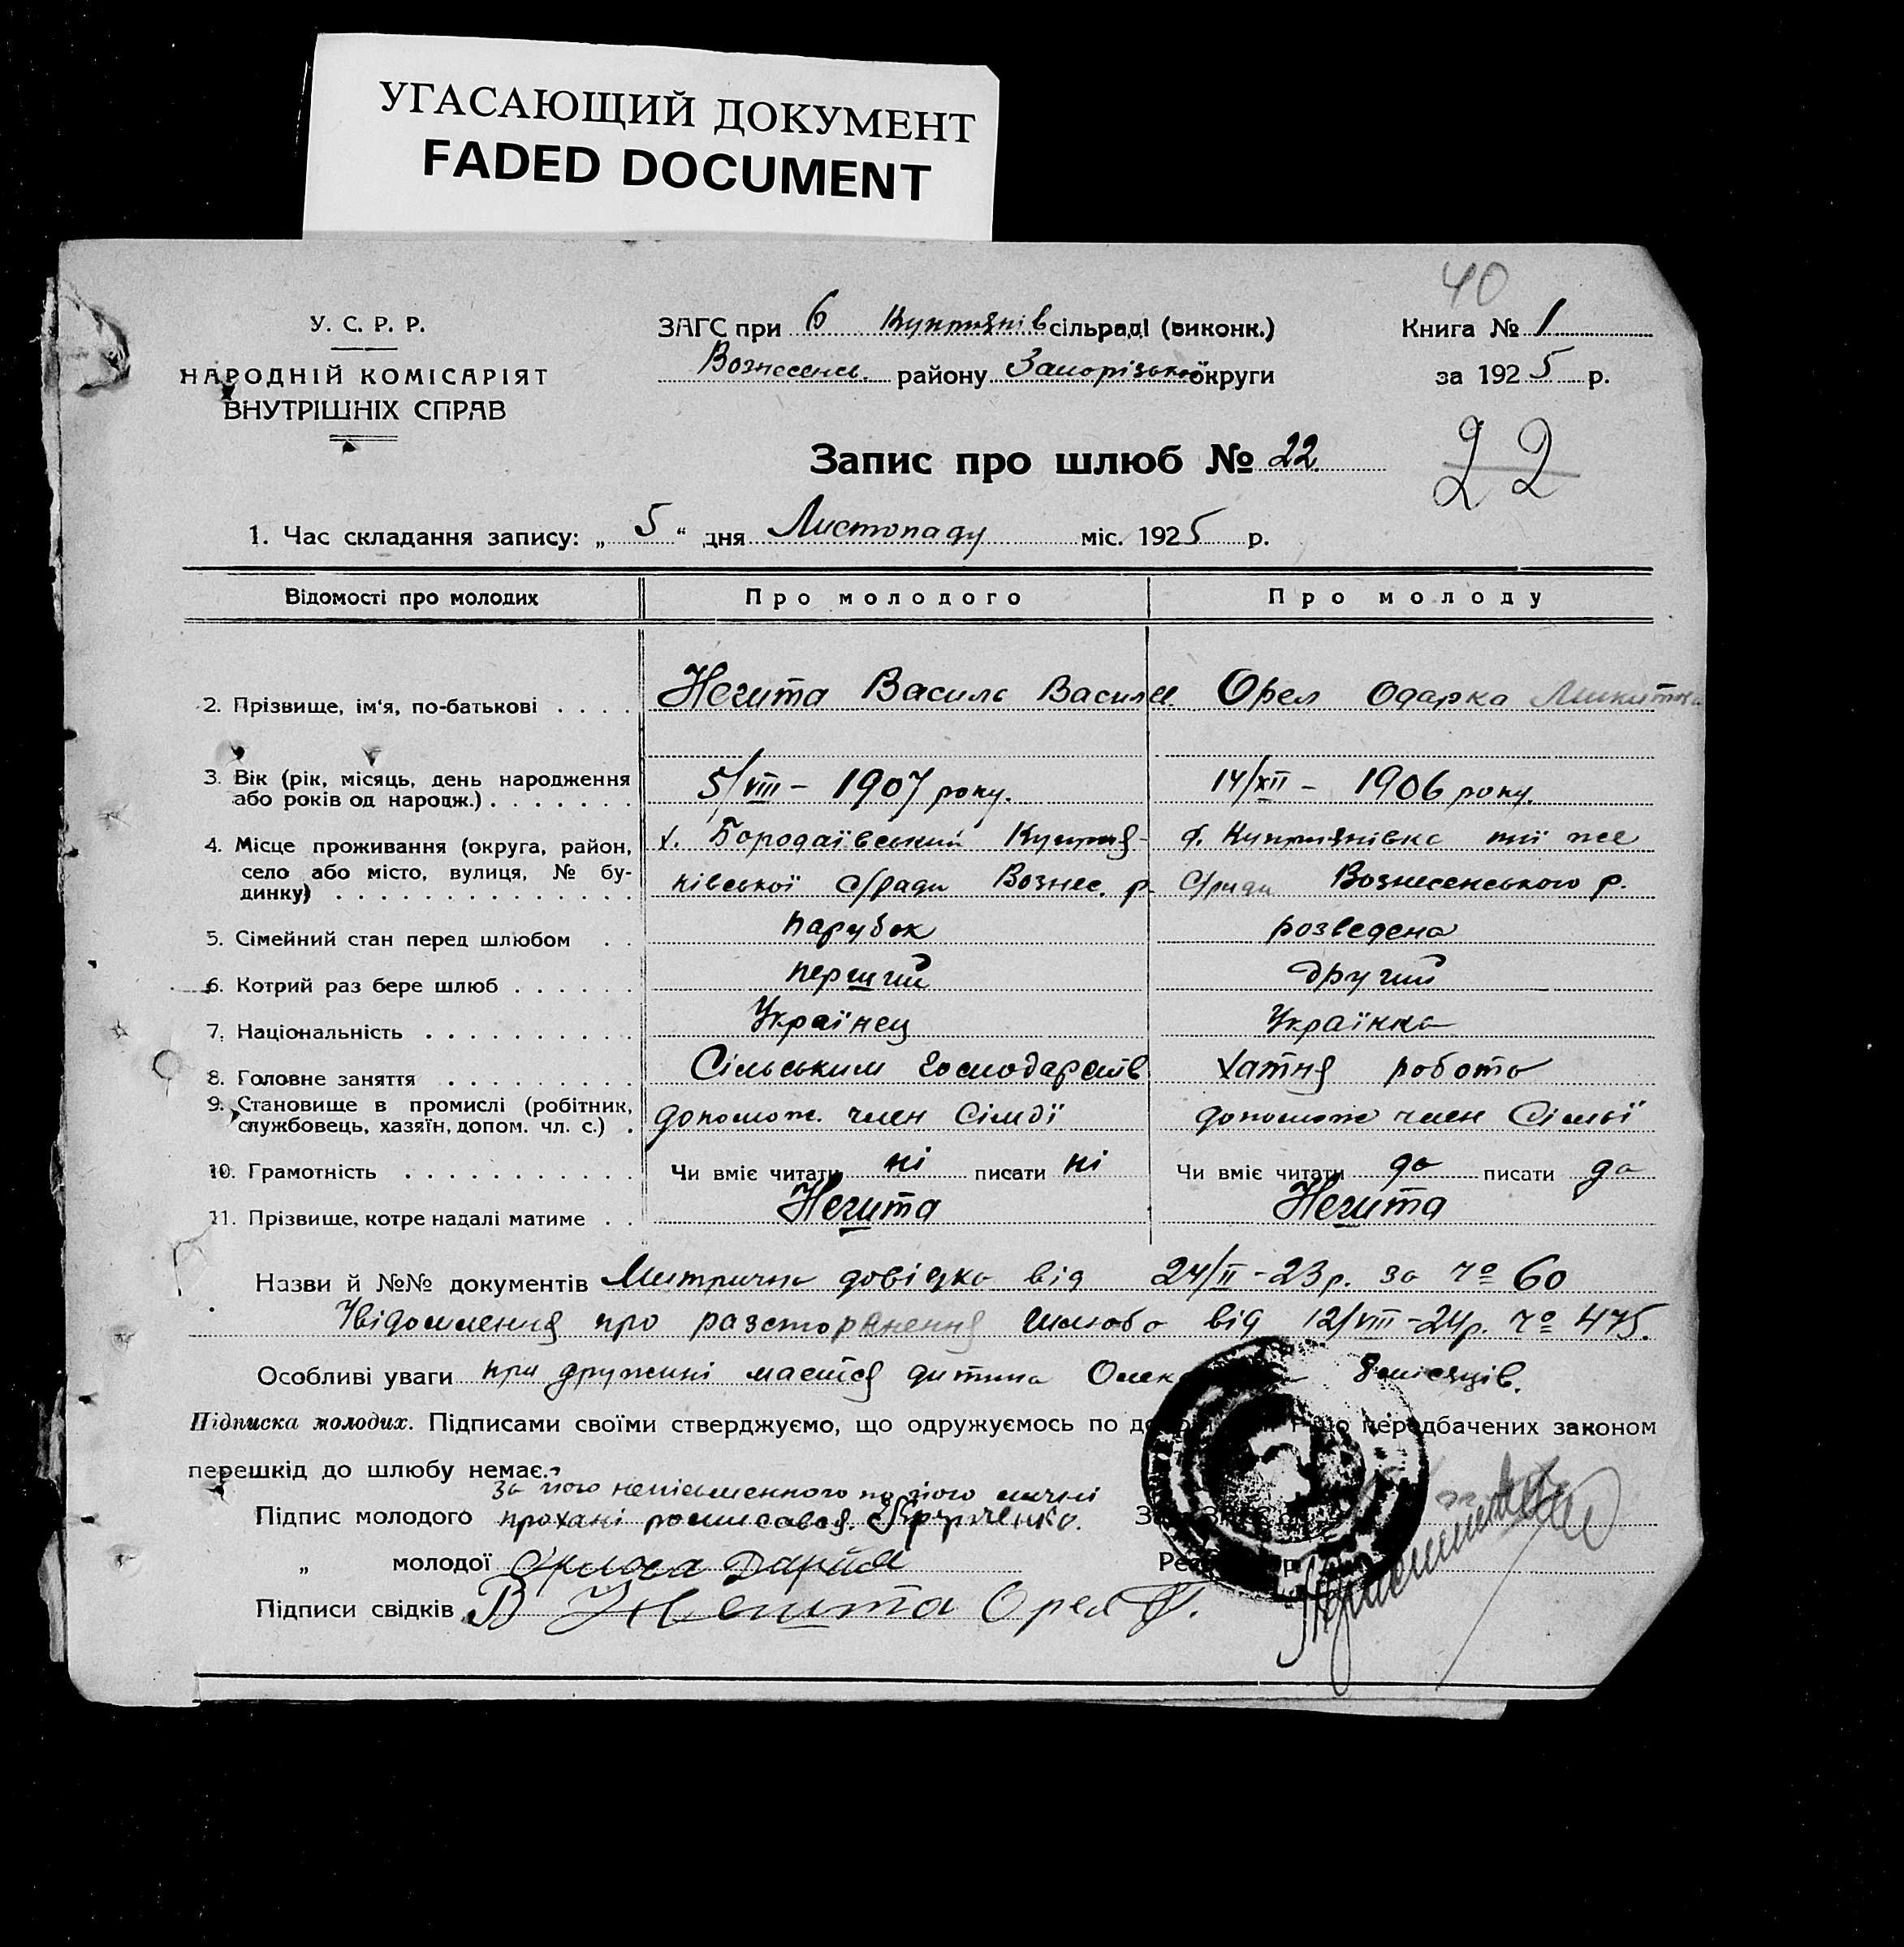 УГАСАЮЩИЙ ДОКУМЕНТ
FADED DOCUMENT
40
У. С. Р. Р.
НАРОДНІЙ КОМІСАРІЯТ
ВНУТРІШНІХ СПРАВ
ЗАГС при 6 Куптянів сільраді (виконк.)
Вознесенс. району Запорізької округи
Книга № 1
за 1925 р.
Запис про шлюб № 22.
22
1. Час складання запису: „ 5 “ дня Листопаду міс. 1925 р.
Відомості про молодих Про молодого Про молоду
2. Прізвище, ім'я, по-батькові . . . . Негита Василь Василів. Орел Одарка Микитовна
3. Вік (рік, місяць, день народження
або років од народж.) . . . . . . . 5/VIII – 1907 року. 14/XII – 1906 року.
4. Місце проживання (округа, район,
село або місто, вулиця, № бу-
динку) . . . . . . . . . . . . . .
х. Бородаївський Куптя- с. Куптянівка тії же
нівської с/ради Вознес. р. с/ради Вознесенського р.
5. Сімейний стан перед шлюбом . . парубок розведена
6. Котрий раз бере шлюб . . . . . . перший другий
7. Національність . . . . . . . . . . Українец Українка
8. Головне заняття . . . . . . . . . Сільським господарств хатня робота
9. Становище в промислі (робітник,
службовець, хазяїн, допом. чл. с.) . допомож. член сімьї допомож член сімьї
10. Грамотність . . . . . . . . . . . Чи вміє читати ні писати ні Чи вміє читати да писати да
11. Прізвище, котре надалі матиме . . Негита Негита
Назви й №№ документів Митрична довідка від 24/II-23р. за № 60
Увідомлення про разсторжнення шлюбо від 12/VIII-24р. № 475.
Особливі уваги при дружині маєтся дитина 8 місяців.
Підписка молодих. Підписами своїми стверджуємо, що одружуємось по що передбачених законом
перешкід до шлюбу немає.
за його неписьменного по його личні
Підпис молодого прохані росписався.
„ молодої Орлова Дарія
Підписи свідків В Негита Орел